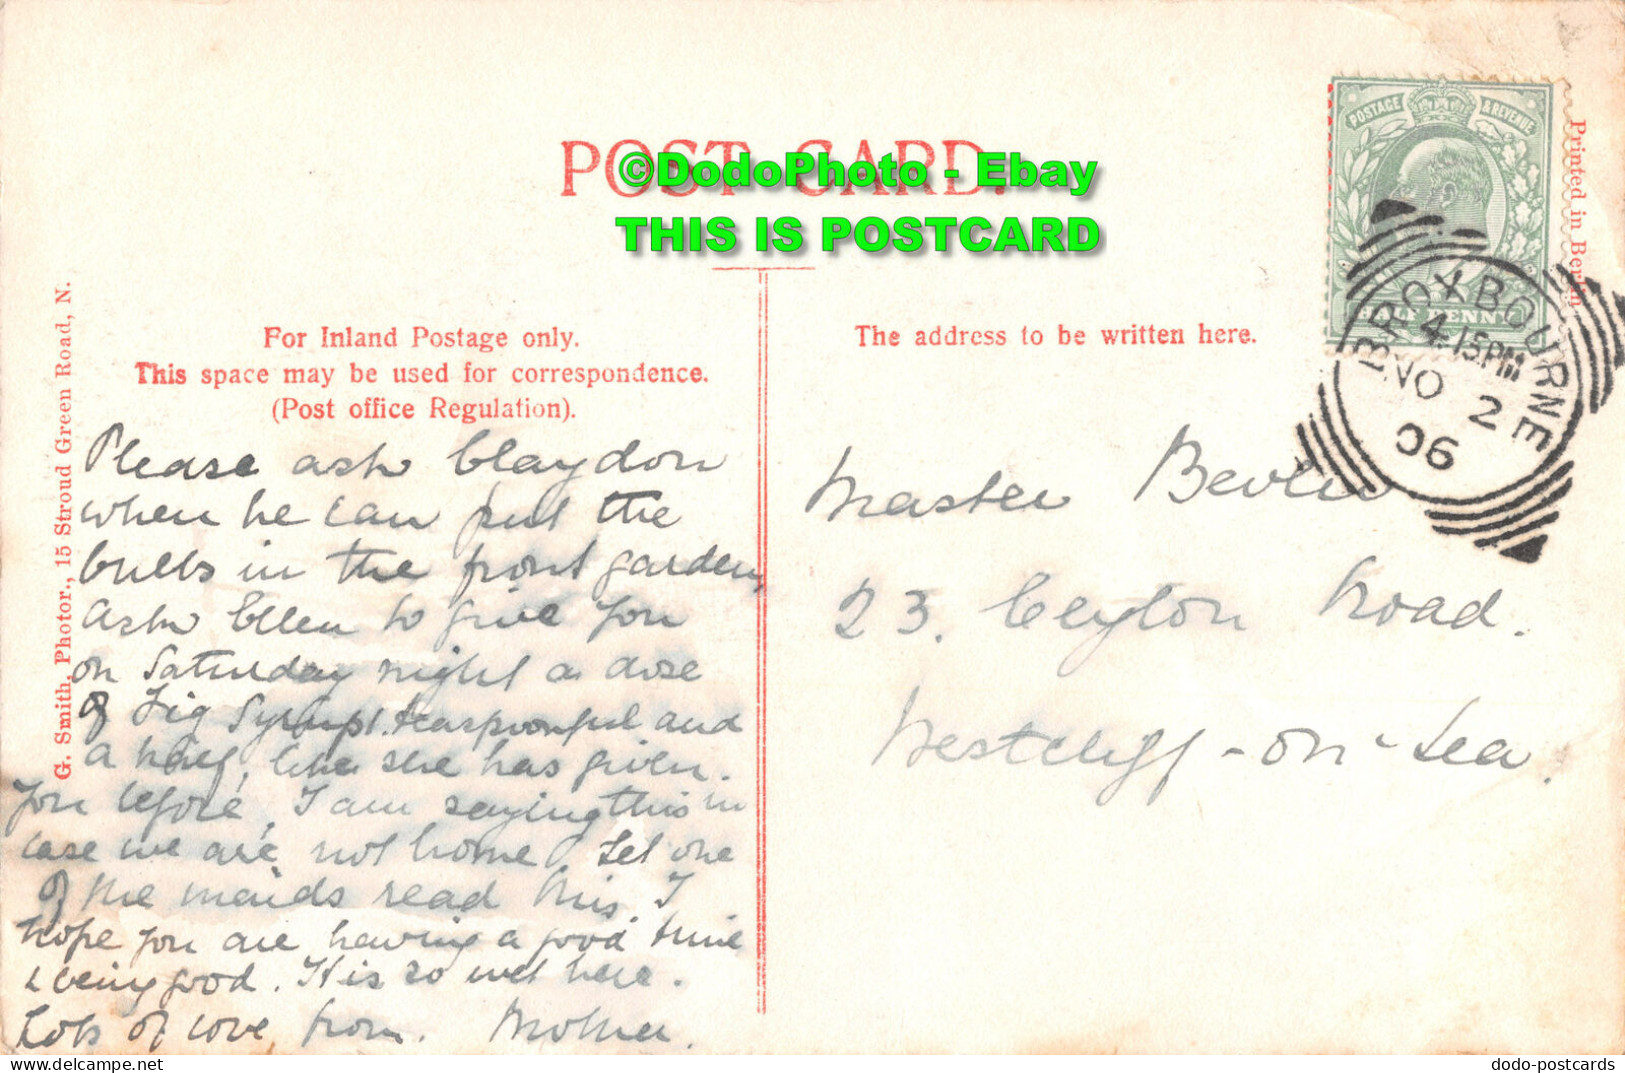 POST CARD.
©DodoPhoto - Ebay
THIS IS POSTCARD
POSTAGE & REVENUE
HALF PENNY
BROXBOURNE
4.15PM
NO 2
06
Printed in Berlin
G. Smith, Photor., 15 Stroud Green Road, N.
For Inland Postage only.
This space may be used for correspondence.
(Post office Regulation).
The address to be written here.
Please ask Claydon
when he can put the
bulbs in the front garden,
ask Ellen to give you
on Saturday night a dose
of Fig Syrup 1. teaspoonful and
a half, like she has given.
you before, I am saying this in
case we are not home. Let one
of the maids read this. I
hope you are having a good time
& being good. It is so wet here.
Lots of love from. Mother.
Master
23. Ceylon Road.
Westcliff-on-Sea.
Delcampe.net
dodo-postcards